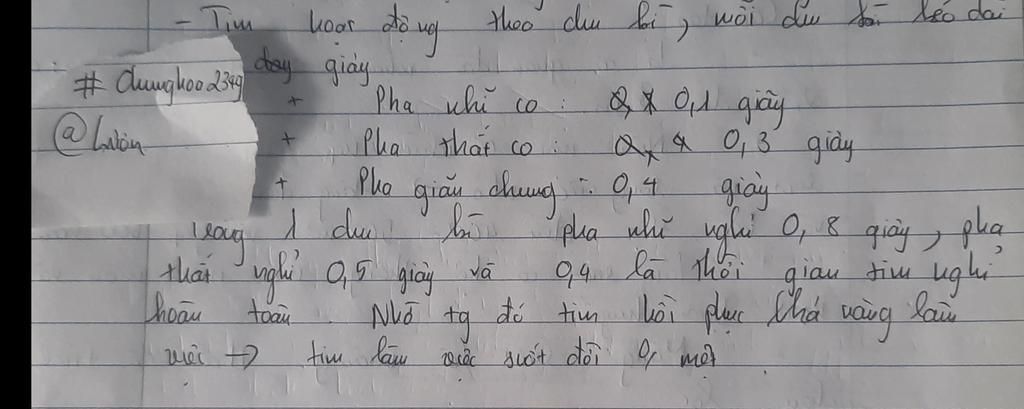 - Tim hoạt động theo chu kì, mỗi chu kéo dài
giây
#dungkoo2349
+ Pha nhĩ co : 0,1 giây
@Luôn
+ Pha thất co : 0,3 giây
+ Pha giãn chung : 0,4 giây
1 chu kì pha nhĩ nghỉ 0,8 giây, pha
thất nghỉ 0,5 giây và 0,4 là thời gian tim nghỉ
hoàn toàn. Nhờ tg đó tim hồi phục khả năng làm
việc → tim làm việc suốt đời 0, mệt